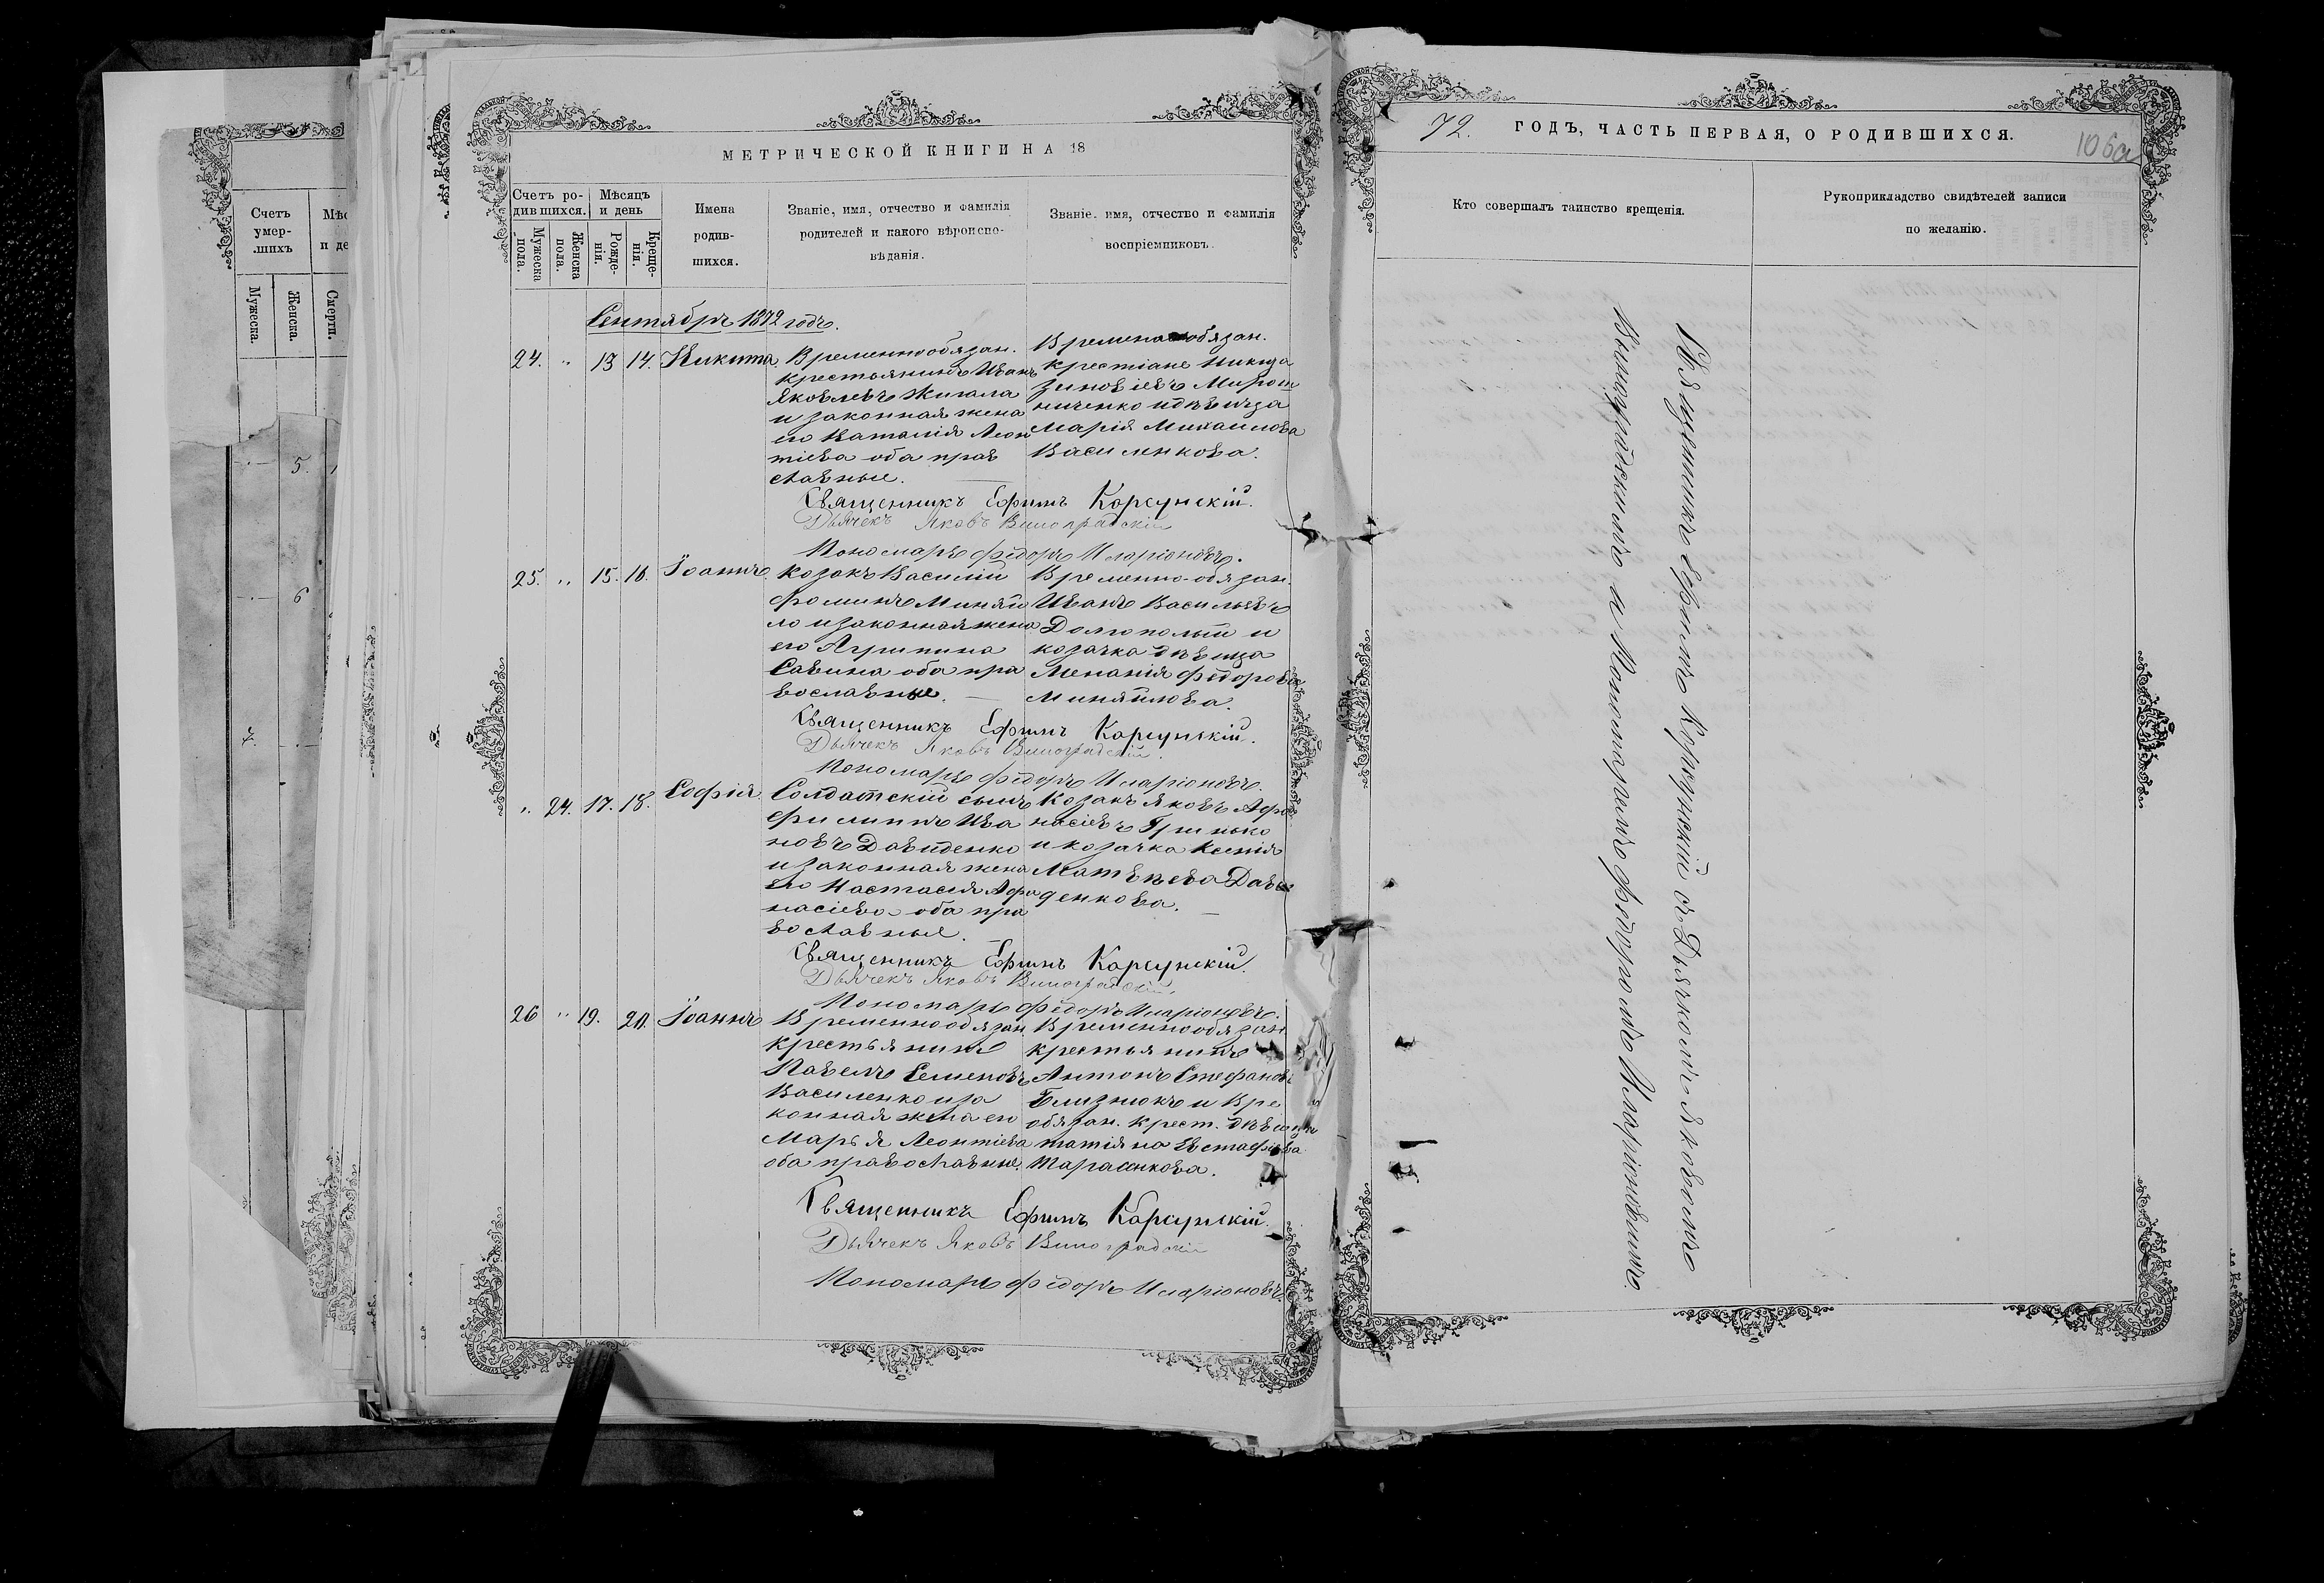 МЕТРИЧЕСКОЙ КНИГИ НА 18
Счетъ родившихся.
Мѣсяцъ и день
Имена родившихся.
Званіе, имя, отчество и фамилія родителей и какого вѣроисповѣданія.
Званіе, имя, отчество и фамилія воспріемниковъ.
Мужеска пола.
Женска пола.
Рожденія.
Крещенія.
Сентябрь 1872 годъ.
24. " 13 14. Никита
Временнообязан.
крестьянинъ Иванъ
Яковлевъ Жигала
и законная жена
его Наталія Леон
тіева оба прав
славные.
Временнообязан.
крестіане Никита
Зиновіевъ Мирош
ниченко и дѣвица
Марія Михаилова
Василенкова.
Священникъ Ефимъ Корсунскій.
Дьячекъ Яковъ Виноградскій
Пономарь Федоръ Иларіоновъ.
25. " 15. 16. Іоаннъ.
Козакъ Василій
Фоминъ Миняй
ло и законная жена
его Агрипина
Савина оба пра
вославные.
Временно-обязан.
Иванъ Васильевъ
Долгополый и
козачка дѣвица
Меланія Федорова
Миняйлова.
Священникъ Ефимъ Корсунскій.
Дьячекъ Яковъ Виноградскій.
Пономарь Федоръ Иларіоновъ.
" 24. 17. 18. Софія.
Солдатскій сынъ
Филиппъ Ива
новъ Давиденко
и законная жена
его Настасія Афа
насіева оба пра
вославные.
Козакъ Яковъ Афа
насіевъ Гринько
и козачка Ксенія
Матѣеева Давы
денкова.
Священникъ Ефимъ Корсунскій.
Дьячекъ Яковъ Виноградскій.
Пономарь Федоръ Иларіоновъ.
26 " 19. 20. Іоаннъ
Временнообязан
крестьянинъ
Павелъ Семеновъ
Василенко и за
конная жена его
Марья Леонтіева
оба православные.
Временнообязан
крестьянинъ
Антонъ Стефановъ
Близнюкъ и Вре
обязан. крест. дѣвица
Татіяна Евстафіева
Тарасенкова.
Священникъ Ефимъ Корсунскій.
Дьячекъ Яковъ Виноградскій
Пономарь Федоръ Иларіоновъ.
72. ГОДЪ, ЧАСТЬ ПЕРВАЯ, О РОДИВШИХСЯ.
106а
Кто совершалъ таинство крещенія.
Рукоприкладство свидѣтелей записи по желанію.
Священникъ Ефимъ Корсунскій съ Дьячкомъ Яковомъ
Виноградскимъ и Пономаремъ Федоромъ Иларіоновымъ
Счетъ умерших
Мужеска.
Женска.
Смерти.
5.
6
7.